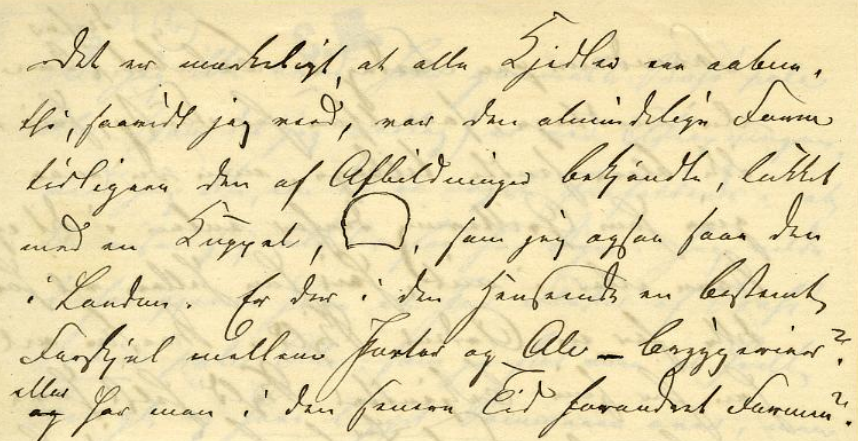 Det er mærkeligt, at alle Kjedler ere aabne,
thi, saavidt jeg veed, var den almindelige Form
tidligere den af Afbildninger bekjendte, lukket
med en Kuppel, , som jeg ogsaa saae den
i London. Er der i den Henseende en bestemt
Forskjel mellem Porter og Ale-bryggerier?
eller og har man i den senere Tid forandret Formen?